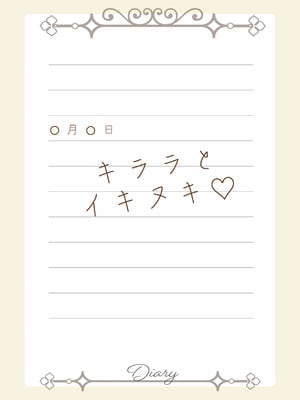 〇月〇日
キララと
イキヌキ♡
Diary